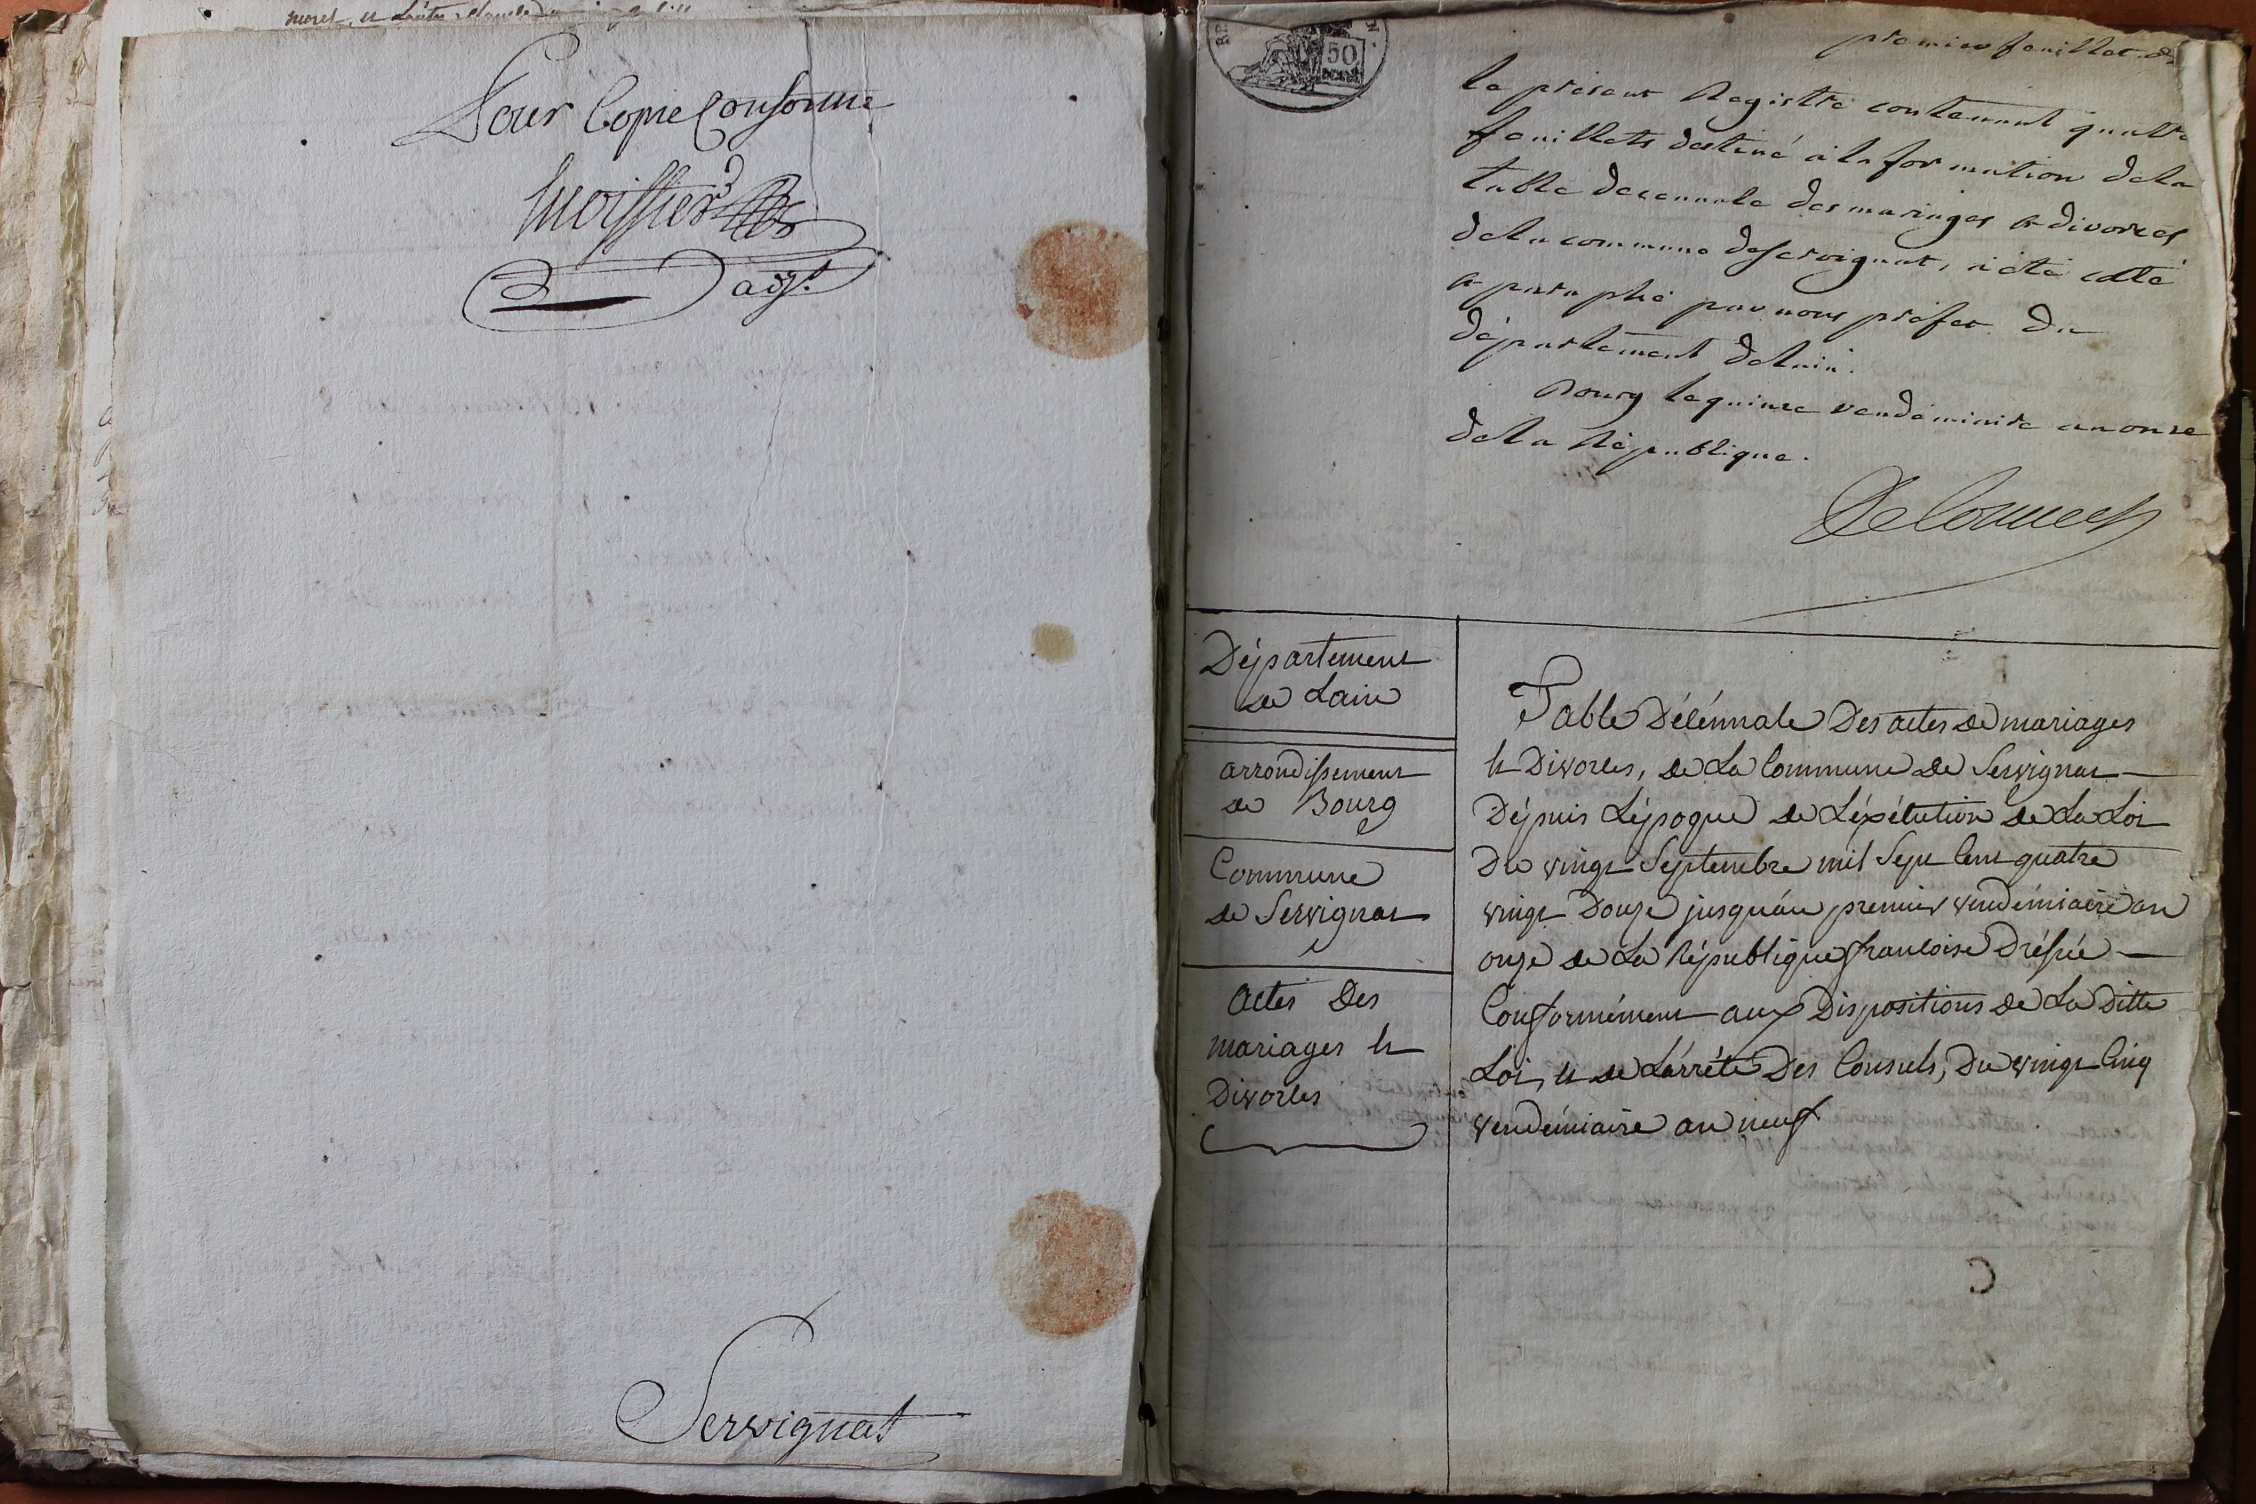 Pour Copie Conforme
Moissier
adjt.
Servignat
50
premier feuillet
le présent Registre contenant quatre
feuillets destiné à la formation de la
table décennale des mariages et divorces
de la commune de servignat, a été cotté
et paraphé par nous préfet du
département de lain.
Bourg le quinze vendémiaire an onze
de la République.
Département
de Lain
arrondissement
de Bourg
Commune
de Servignat
Actes Des
mariages et
Divorces
Table Décénnale Des actes de mariages
et Divorces, de La Commune de Servignat
Dépuis Lépoque de Léxécution de La Loi
Du vingt Septembre mil Sept Cent quatre
vingt Douze jusquáu premier vendémiaire an
onze de La République francoise Dréssée
Conformément aux Dispositions de La Ditte
Loi, et de L'arrêté Des Consuls, Du vingt Cinq
vendémiaire an neuf